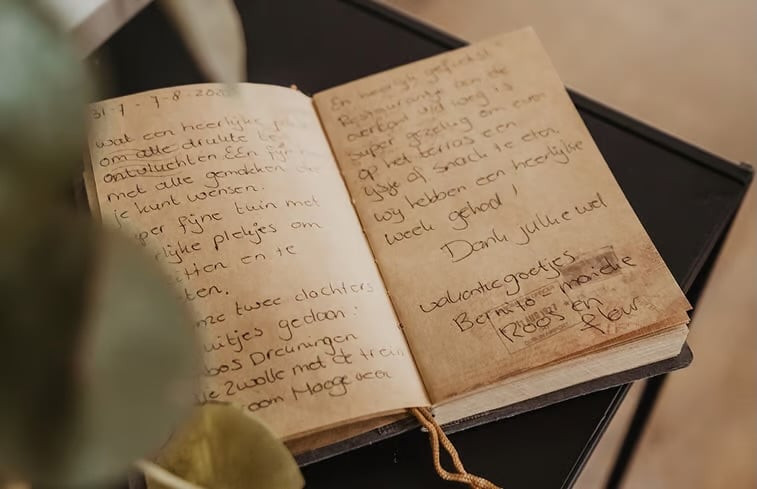 31-7 - 7-8-202
wat een heerlijke
om alle drukte te
ontvluchten. Een fijn
met alle gemakken die
je kunt wensen.
per fijne tuin met
rlijke plekjes om
itten en te
ten.
nze twee dochters
uitjes gedaan:
oos Dreuningen
Zwolle met de trein
oom Hoogeveen
En heerlijk gefietst!
Restaurantje aan de
overkant vd weg is
super gezellig om even
op het terras een
ijsje of snack te eten.
wij hebben een heerlijke
week gehad!
Dank jullie wel
vakantiegroetjes
maaike
Roos en
fleur